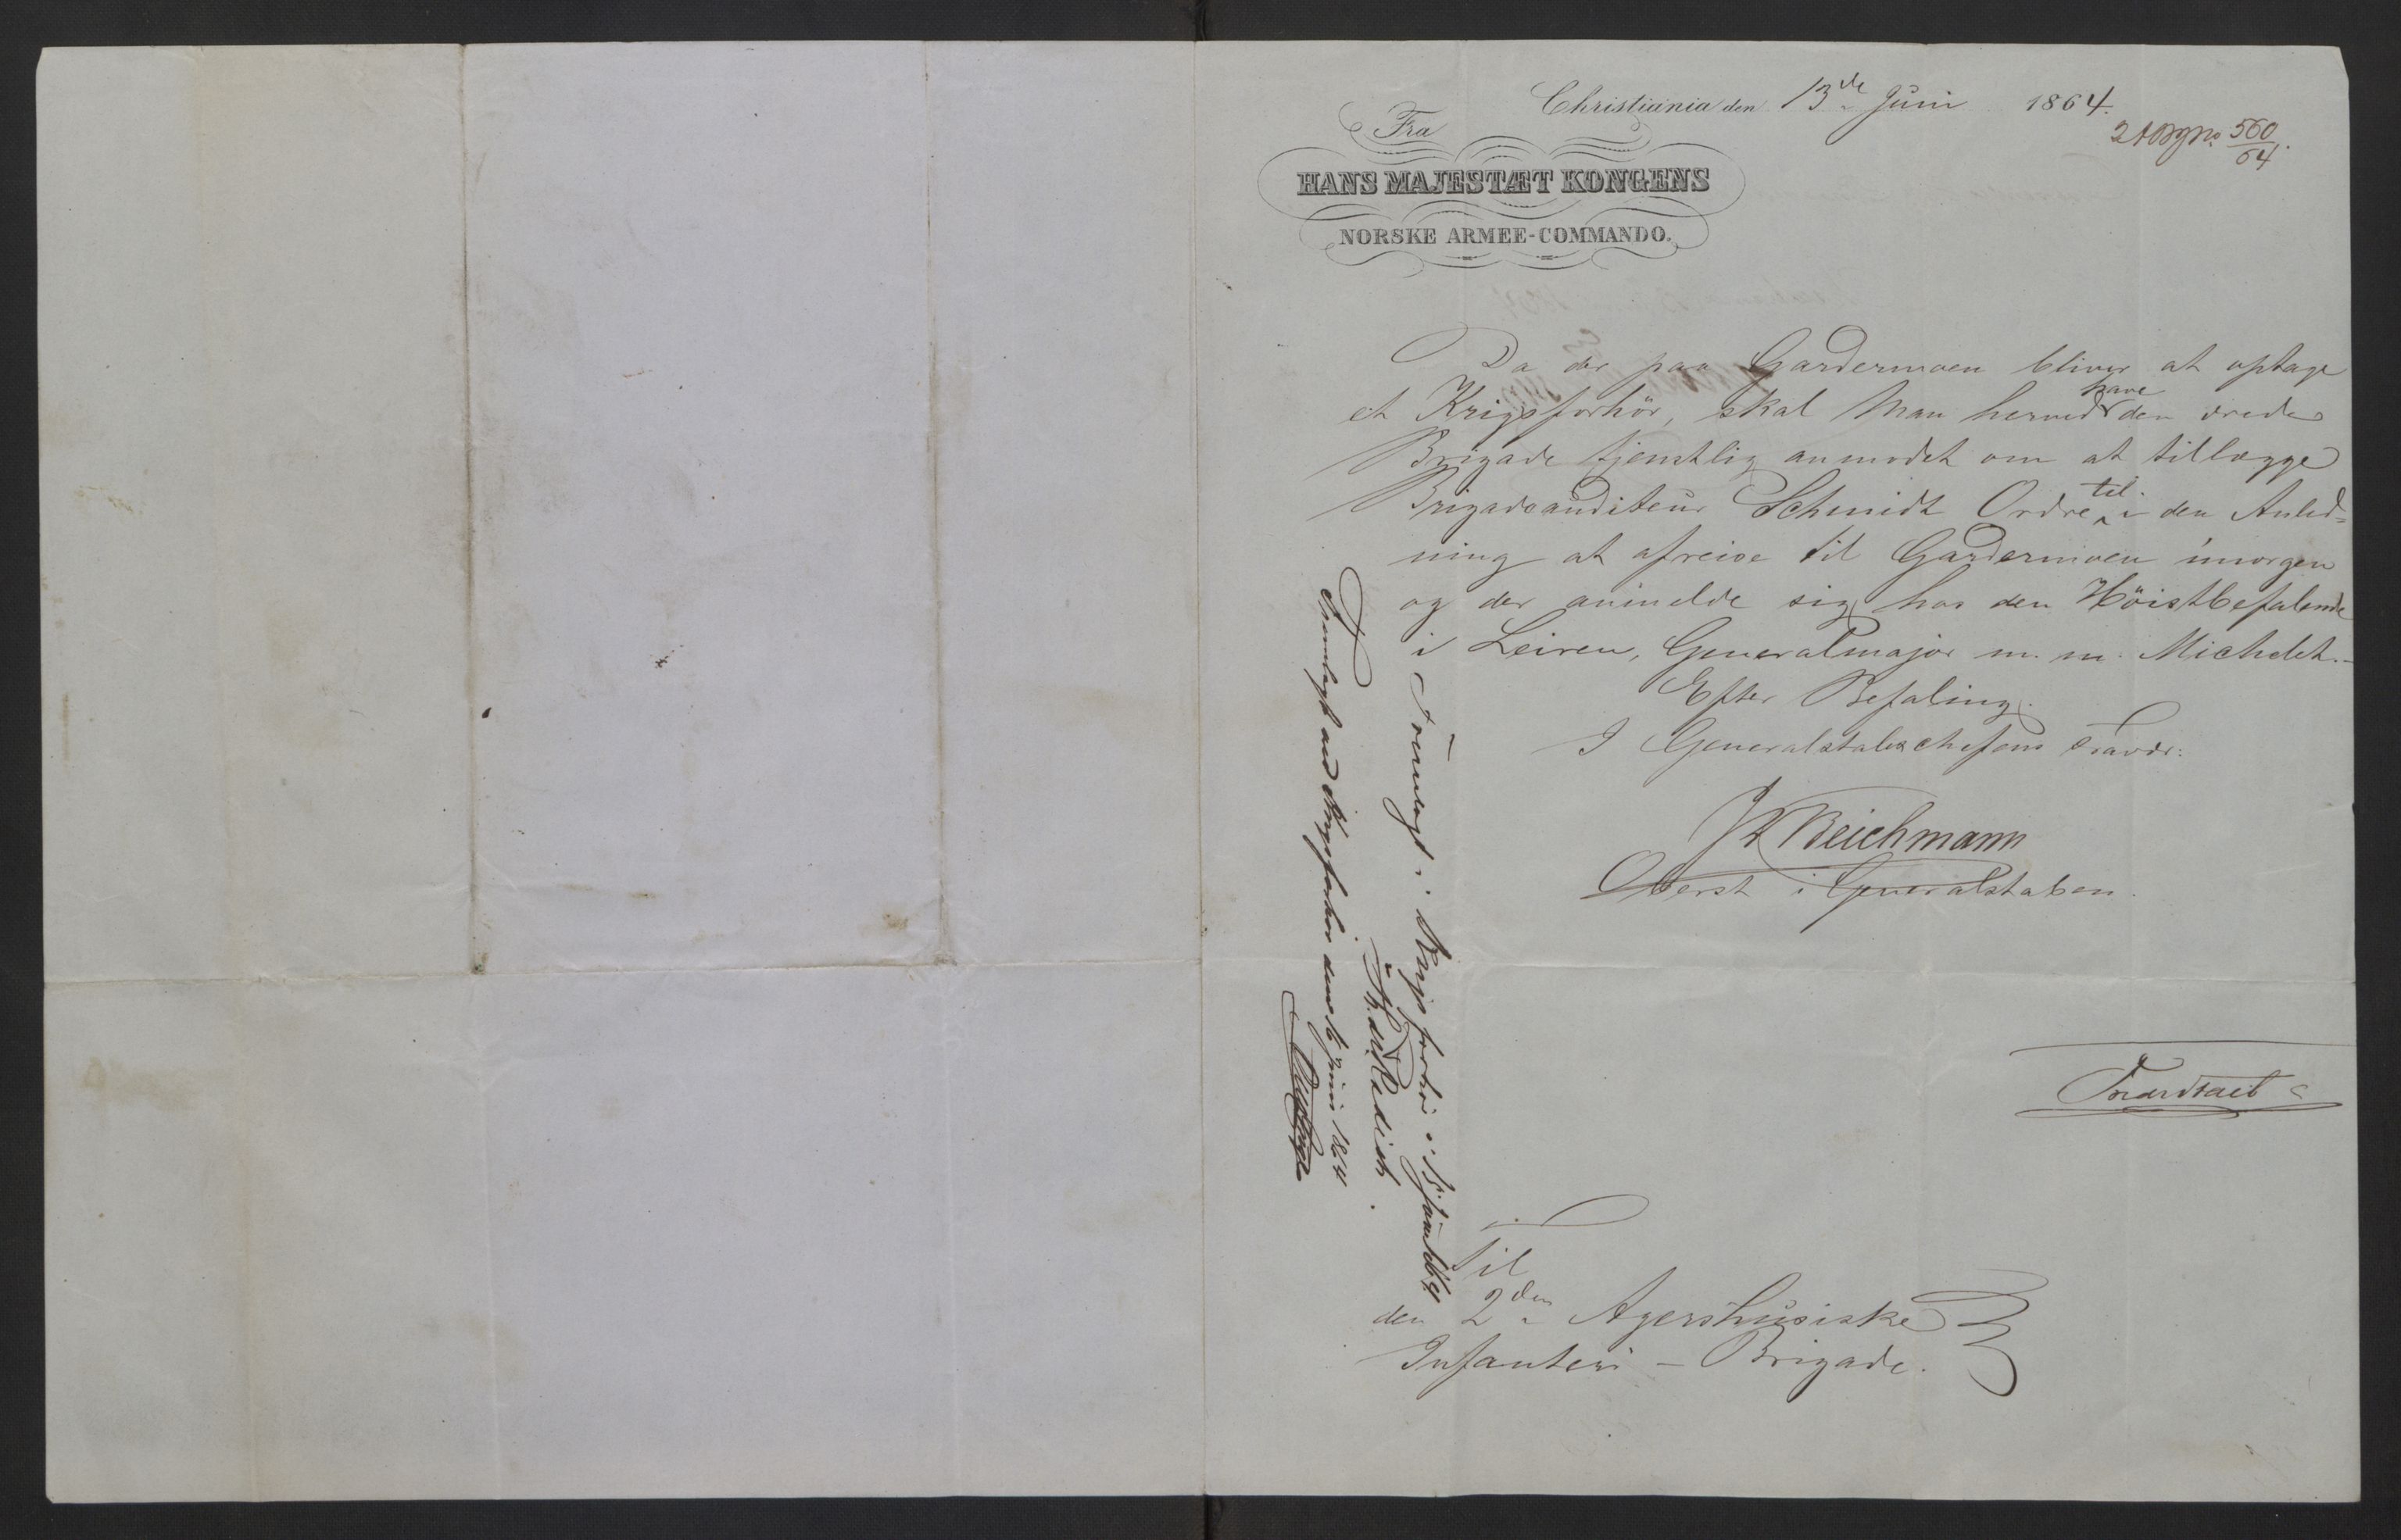 Christiania den 13de Juni 1864.
2 A Bg No 560/64.
Fra
HANS MAJESTÆT KONGENS
NORSKE ARMEE-COMMANDO.
Da der paa Gardermoen bliver at optage
et Krigsforhör, skal Man herved have den ærede
Brigade tjenstlig anmodet om at tillægge
Brigadeauditeur Schmidt Ordre til i den Anled=
ning at afreise til Gardermoen imorgen
og der anmelde sig hos den Höistbefalende
i Leiren, Generalmajor m. m. Michelet.
Efter Befaling.
I Generalstabschefens Fravær.
Beichmann
Oberst i Generalstaben.
Til
den 2den Agershusiske
Infanteri-Brigade.
Fremlagt i Krigsforhör i Juni 1864
Fremlagt ved Krigsforhör den Juni 1864